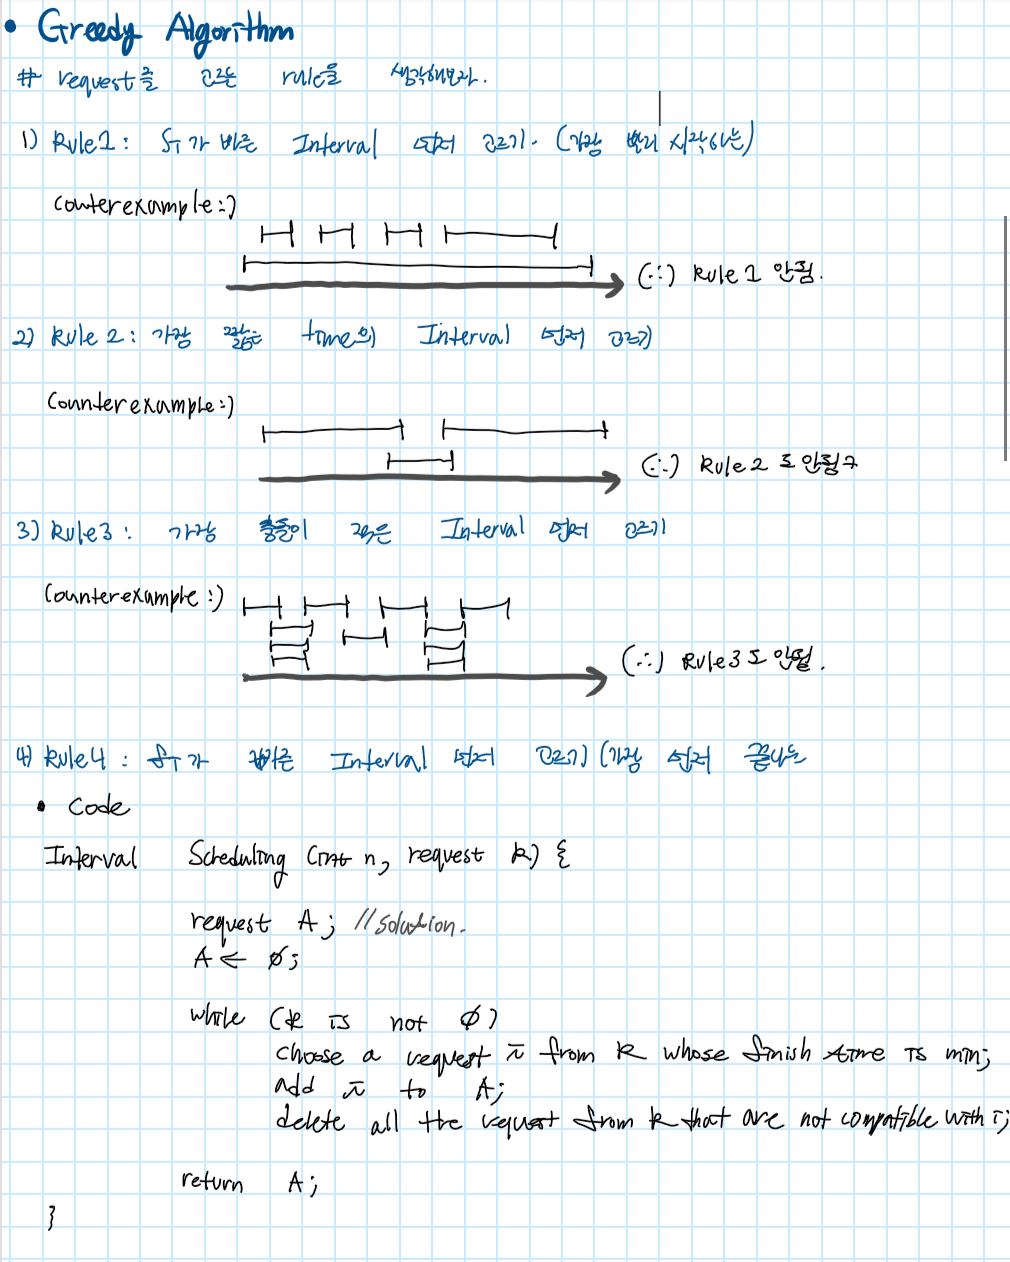 • Greedy Algorithm
# request를 고르는 rule을 생각해보자.
1) Rule1: ST가 빠른 Interval 먼저 고르기. (가장 빨리 시작하는)
counterexample:)
(∴) Rule 1 안됨.
2) Rule 2: 가장 짧은 time의 Interval 먼저 고르기
Counterexample:)
(∴) Rule 2 도 안됨
3) Rule3: 가장 충돌이 적은 Interval 먼저 고르기
Counterexample:)
(∴) Rule3도 안됨.
4) Rule4: FT가 빠른 Interval 먼저 고르기 (가장 먼저 끝나는
• Code
Interval Scheduling (int n, request R) {
request A; //solution.
A ← ∅;
while (R is not ∅)
choose a request i from R whose finish time is min;
add i to A;
delete all the request from R that are not compatible with i;
return A;
}